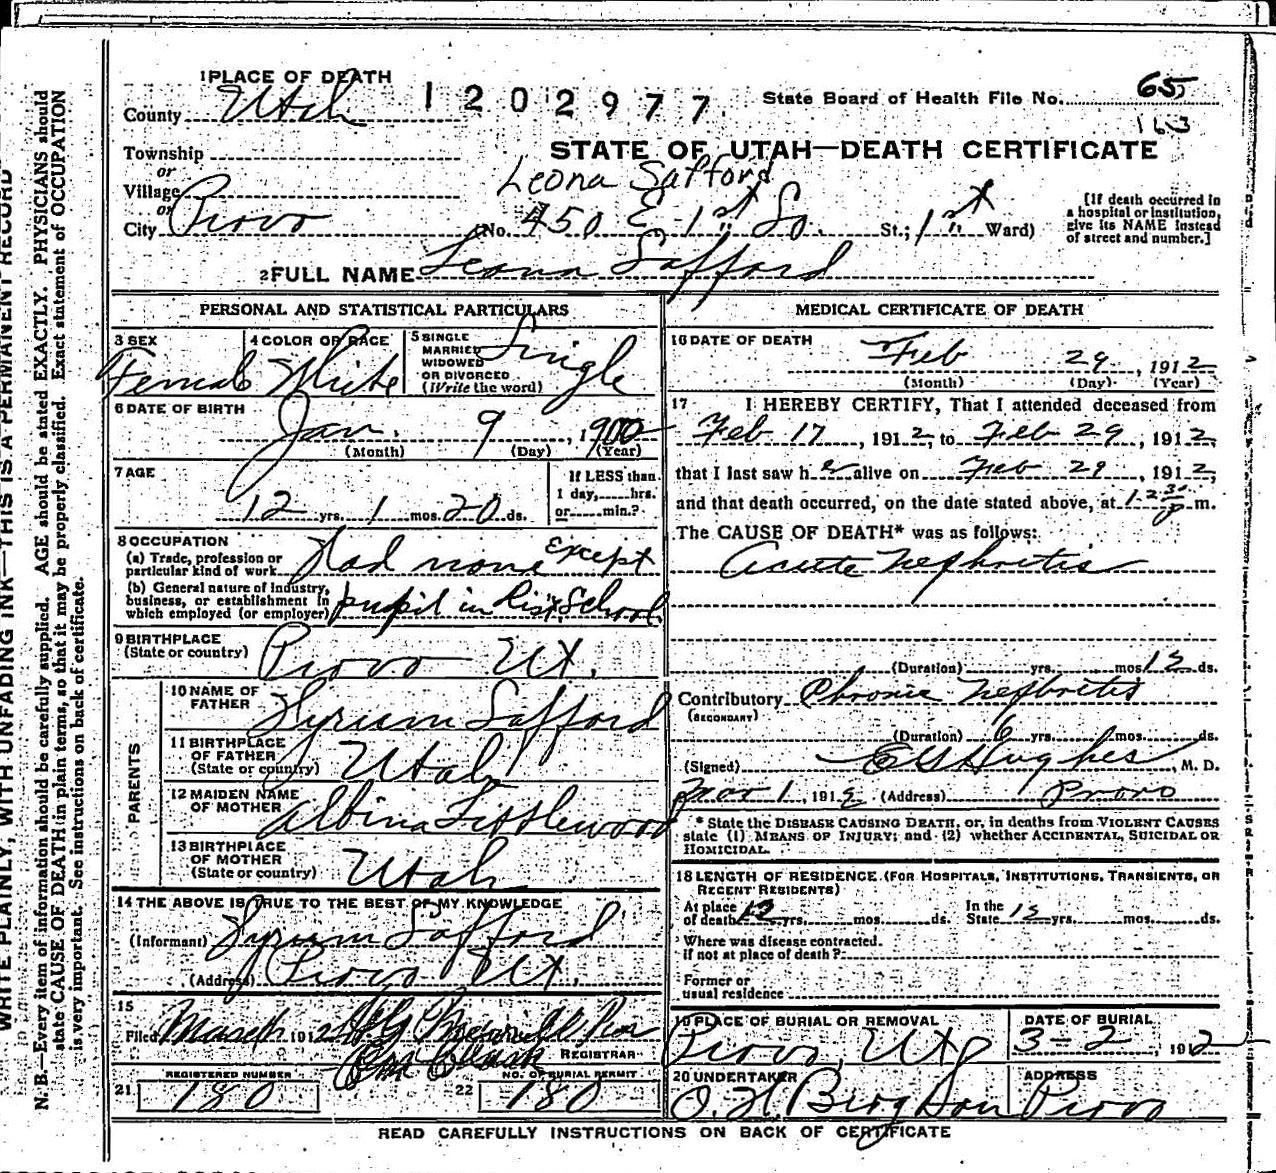 WRITE PLAINLY, WITH UNFADING INK—THIS IS A PERMANENT RECORD
N. B.—Every item of information should be carefully supplied. AGE should be stated EXACTLY. PHYSICIANS should
state CAUSE OF DEATH in plain terms, so that it may be properly classified. Exact statement of OCCUPATION
is very important. See instructions on back of certificate.
1 PLACE OF DEATH
County Utah
1202977
State Board of Health File No. 65
163
Township
or
Village
or
City Provo
STATE OF UTAH—DEATH CERTIFICATE
Leona Safford
(No. 450 E 1st So. St.; 1st Ward)
[If death occurred in
a hospital or institution,
give its NAME instead
of street and number.]
2 FULL NAME Leona Safford
PERSONAL AND STATISTICAL PARTICULARS
3 SEX Female
4 COLOR OR RACE White
5 SINGLE
MARRIED
WIDOWED
OR DIVORCED
(Write the word) Single
6 DATE OF BIRTH
Jan. 9, 1900
(Month) (Day) (Year)
7 AGE
12 yrs. 1 mos. 20 ds.
If LESS than
1 day, hrs.
or min.?
8 OCCUPATION
(a) Trade, profession or
particular kind of work Had none except
(b) General nature of industry,
business, or establishment in
which employed (or employer) pupil in Dist. School
9 BIRTHPLACE
(State or country) Provo Ut.
PARENTS
10 NAME OF
FATHER Hyrum Safford
11 BIRTHPLACE
OF FATHER
(State or country) Utah
12 MAIDEN NAME
OF MOTHER Albina Littlewood
13 BIRTHPLACE
OF MOTHER
(State or country) Utah
14 THE ABOVE IS TRUE TO THE BEST OF MY KNOWLEDGE
(Informant) Hyrum Safford
(Address) Provo Ut.
15
Filed March 1912
REGISTRAR
REGISTERED NUMBER
21 180
NO. OF BURIAL PERMIT
22 180
MEDICAL CERTIFICATE OF DEATH
16 DATE OF DEATH
Feb 29, 1912
(Month) (Day) (Year)
17 I HEREBY CERTIFY, That I attended deceased from
Feb 17, 1912, to Feb 29, 1912,
that I last saw her alive on Feb 29, 1912,
and that death occurred, on the date stated above, at 12 30 p m.
The CAUSE OF DEATH* was as follows:
Acute Nephritis
(Duration) yrs. mos 12 ds.
Contributory Chronic Nephritis
(SECONDARY)
(Duration) 6 yrs. mos. ds.
(Signed) Hughes, M. D.
Mar 1, 1912 (Address) Provo
* State the DISEASE CAUSING DEATH, or, in deaths from VIOLENT CAUSES
state (1) MEANS OF INJURY; and (2) whether ACCIDENTAL, SUICIDAL OR
HOMICIDAL.
18 LENGTH OF RESIDENCE (FOR HOSPITALS, INSTITUTIONS, TRANSIENTS, OR
RECENT RESIDENTS)
At place
of death 12 yrs. mos. ds.
In the
State 12 yrs. mos. ds.
Where was disease contracted
if not at place of death?
Former or
usual residence
19 PLACE OF BURIAL OR REMOVAL
Provo, Utah
DATE OF BURIAL
3-2, 1912
20 UNDERTAKER
O. H. Berg & Son
ADDRESS
Provo
READ CAREFULLY INSTRUCTIONS ON BACK OF CERTIFICATE